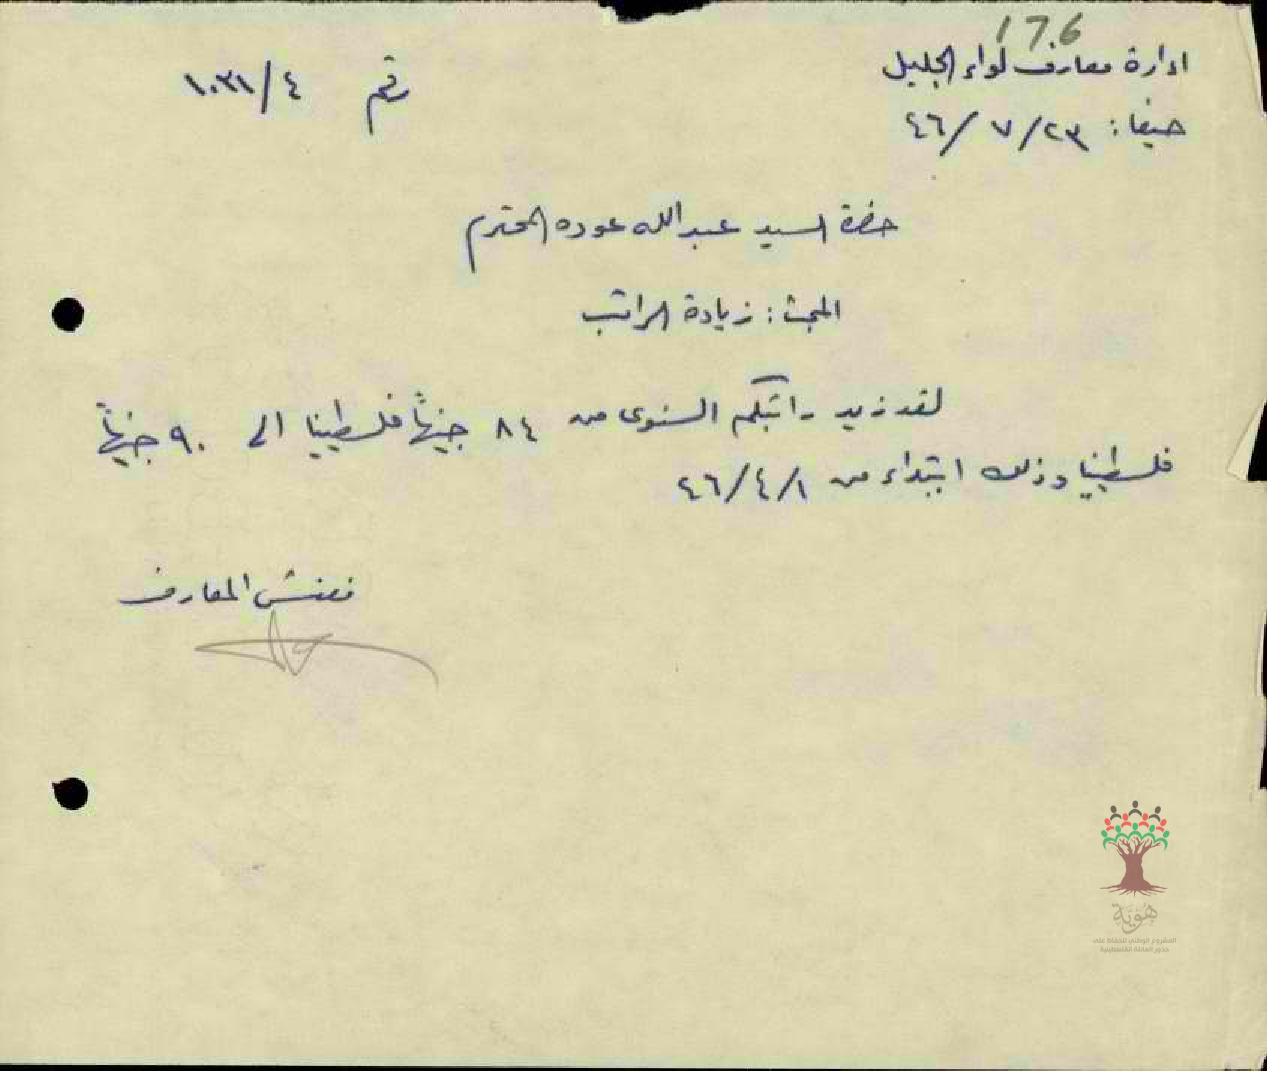 176
ادارة معارف لواء الجليل
حيفا: ٢٣/٧/٤٦
رقم ١٠٣١/٤
حضرة السيد عبدالله عوده المحترم
المبحث: زيادة الراتب
لقد زيد راتبكم السنوى من ٨٤ جنيهاً فلسطينيا الى ٩٠ جنيهاً
فلسطينيا وذلك ابتداء من ٤٦/٤/١
مفتش المعارف
هُوِيَّة
المشروع الوطني للحفاظ على
جذور العائلة الفلسطينية